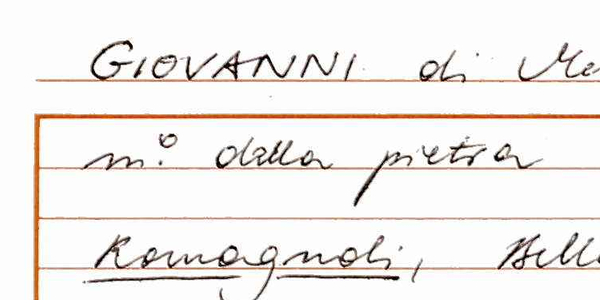 GIOVANNI di
m.º della pietra
Romagnoli,